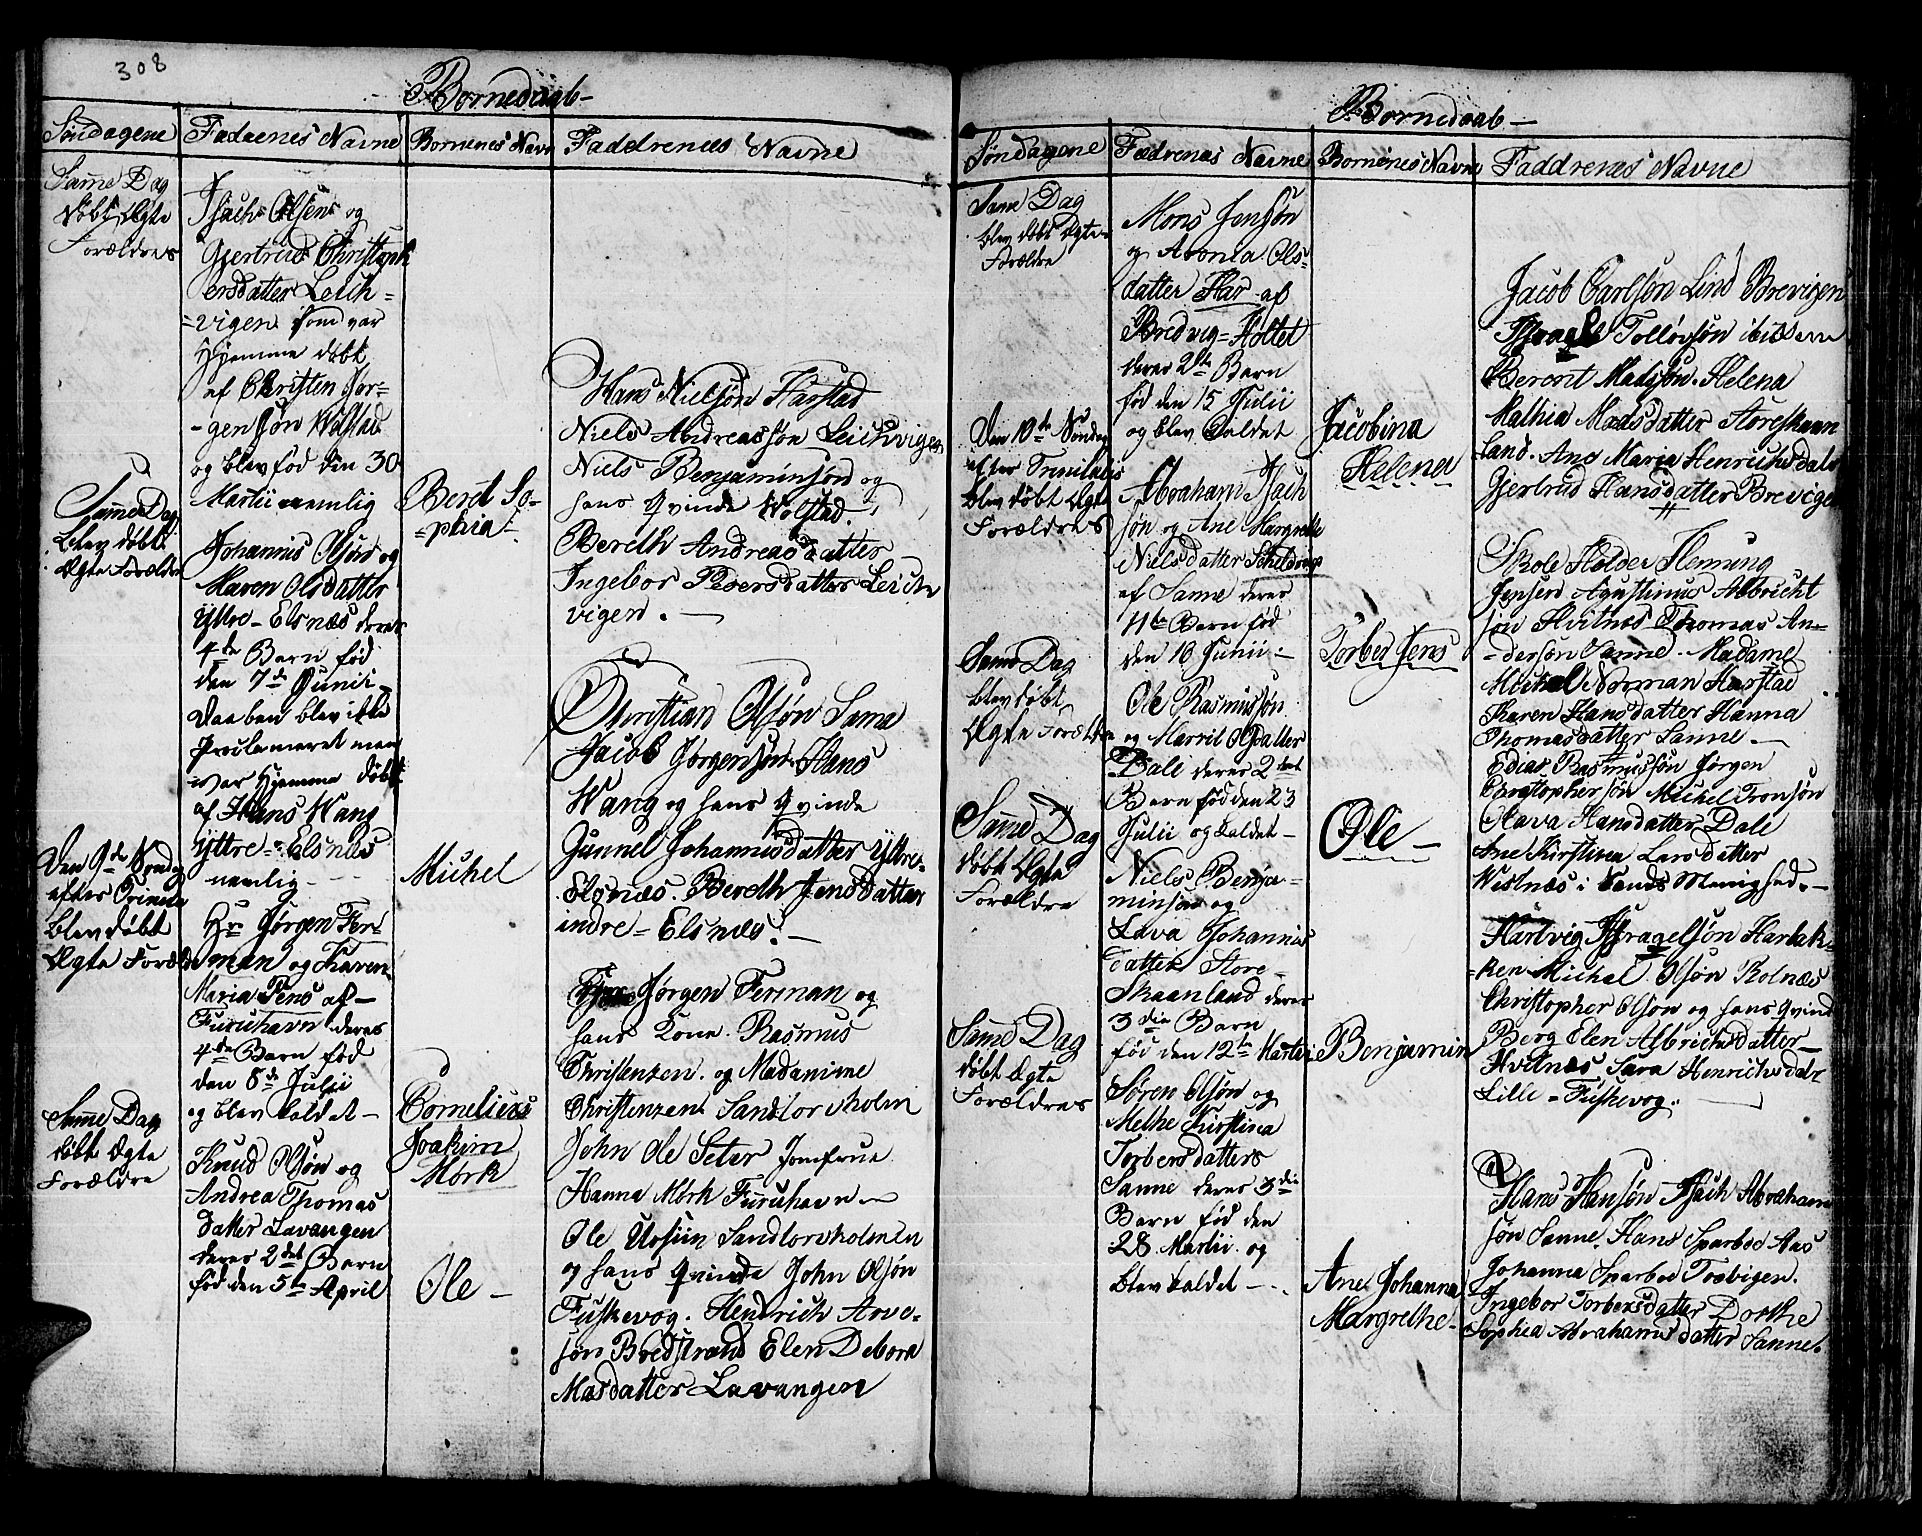 308
Bornedaab-
Søndagene
Fædrenes Navne
Børnenes Navn
Faddrenes Navne
Samme Dag
døbt Ægte
Forældres
Isachs Olsens og
Gjertrud
ersdatter Leich=
=vigen som var
Hjemme døbt
af Christen Jør=
-gensøn Wolstad
og blev fød den 30
Martii nemlig
Beret So-
=phia-
Hans Nielsøn Harstad
Niels Andreassøn Leichvigen
Niels Benjaminsøn og
hans Qvinde Wolstad.
Bereth Andreasdatter
Ingebor Peersdatter Leich
vigen. -
Samme Dag
blev døbt
Ægte Forældre
Johannis Olsøn og
Maren Olsdatter
Yttre-Elsnæs deres
4de Barn fød
den 7de Junii-
Daaben blev ikke
Proclameret men
war Hjemme døbt
af Hans Wang
Yttre-Elsnæs
nemlig-
Michel
Christian Olsøn Sama
Jacob Jørgensøn Hans
Wang og hans Qvinde
Gunnel Johannisdatter Yttre-
Elsnæs. Bereth Jensdatter
indre-Elsnæs. -
Den 9de Søndag
efter Trinita
blev døbt
Ægte Forældre
Hr Jørgen Fer-
man og Karen
Maria Jens af-
Furuhavn deres
4de Barn fød
den 8de Julii
og blev kaldet-
Cornelius
Joakim
Mørk
Jørgen Ferman og
hans Kone. Rasmus
Christenzen. og Madamme
Christenzen Sandtorvholm
John Ole Seter Jomfrue
Hanna Mørk Furuhavn-
Samme Dag
døbt Ægte
Forældre
Knud Olsøn og
Andrea Thomas
datter Lavangen
deres 2det Barn
fød den 5te April
Ole -
Ole Ursiin Sandtorvholmen
og hans Qvinde John Olsøn
Fuskevog. Hendrich Arve-
søn Bredstrand Elen Debora
Masdatter Lavangen
Bornedaab-
Søndagene
Fædrenes Navne
Børnenes Navne
Faddrenes Navne
Same Dag
blev døbt Ægte
Forældre
Mons Jensøn
og Aronia Ols-
datter Har af
Bredvig=Holtet
deres 2det Barn
fød den 15 Julii
og blev kaldet
Jacobina
Helena
Jacob Carlsøn Lind Brevigen
Israel Tollevsøn ibidem
Berent Madsøn. Helena
Mathia Madsdatter Storeskaan
land. Ane Maria Henrichsdatr
Gjertrud Hansdatter Brevigen
Den 10de Søndag
efter Trinitatis
blev døbt Ægte
Forældres
Abraham Isach
søn og Ane Margrethe
Nielsdatter
af Sanne deres
11te Barn fød
den 10 Junii-
Torber Jens
Skole Holder Hemming
Jensen Agustinus Albricht
søn Hvitnæs Thomas An=
-dersøn Sanne. Madame
Michael Norman Harstad
Karen Hansdatter Hanna
Thomasdatter Sanne-
Same Dag
blev døbt
Ægte Forældre
Ole Rasmussøn
og Marrit Olsdatter
Dale deres 2det
Barn fød den 23
Julii og kaldet-
Ole -
Edias Rasmussøn Jørgen
Christophersøn Michel Tronsøn
Mava Hansdatter Dale
Ane Kirstina Larsdatter
Westnæs i Sands Menighed.-
Samme Dag
døbt Ægte
Forældre
Niels Benja=
minsøn og
Lava Johannis
datter Store-
Skaanland deres
3die Barn
fød den 12te Martii
Benjamin
Hartvig Isragelsøn Harbak-
=ken Michel Olsøn Rolnæs
Christopher Olsøn og hans Qvinde
Berg Elen Albrichtsdatter-
Hvitnæs Sara Henrichsdatr
Lille-Fuskevog.
Same Dag
døbt Ægte
Forældres
Søren Olsøn og
Methe Kirstina
Torbersdatter
Sanne deres 3die
Barn fød den
28. Martii og
blev kaldet-
Ane Johanna
Margrethe-
Hans Hansøn Isach Abraham
søn Sanne. Hans Sparboe Aas
Johanna Sparboe Trævigen.
Ingebor Torbersdatter Dorthe
Sophia Abrahamsdatter Sanne.